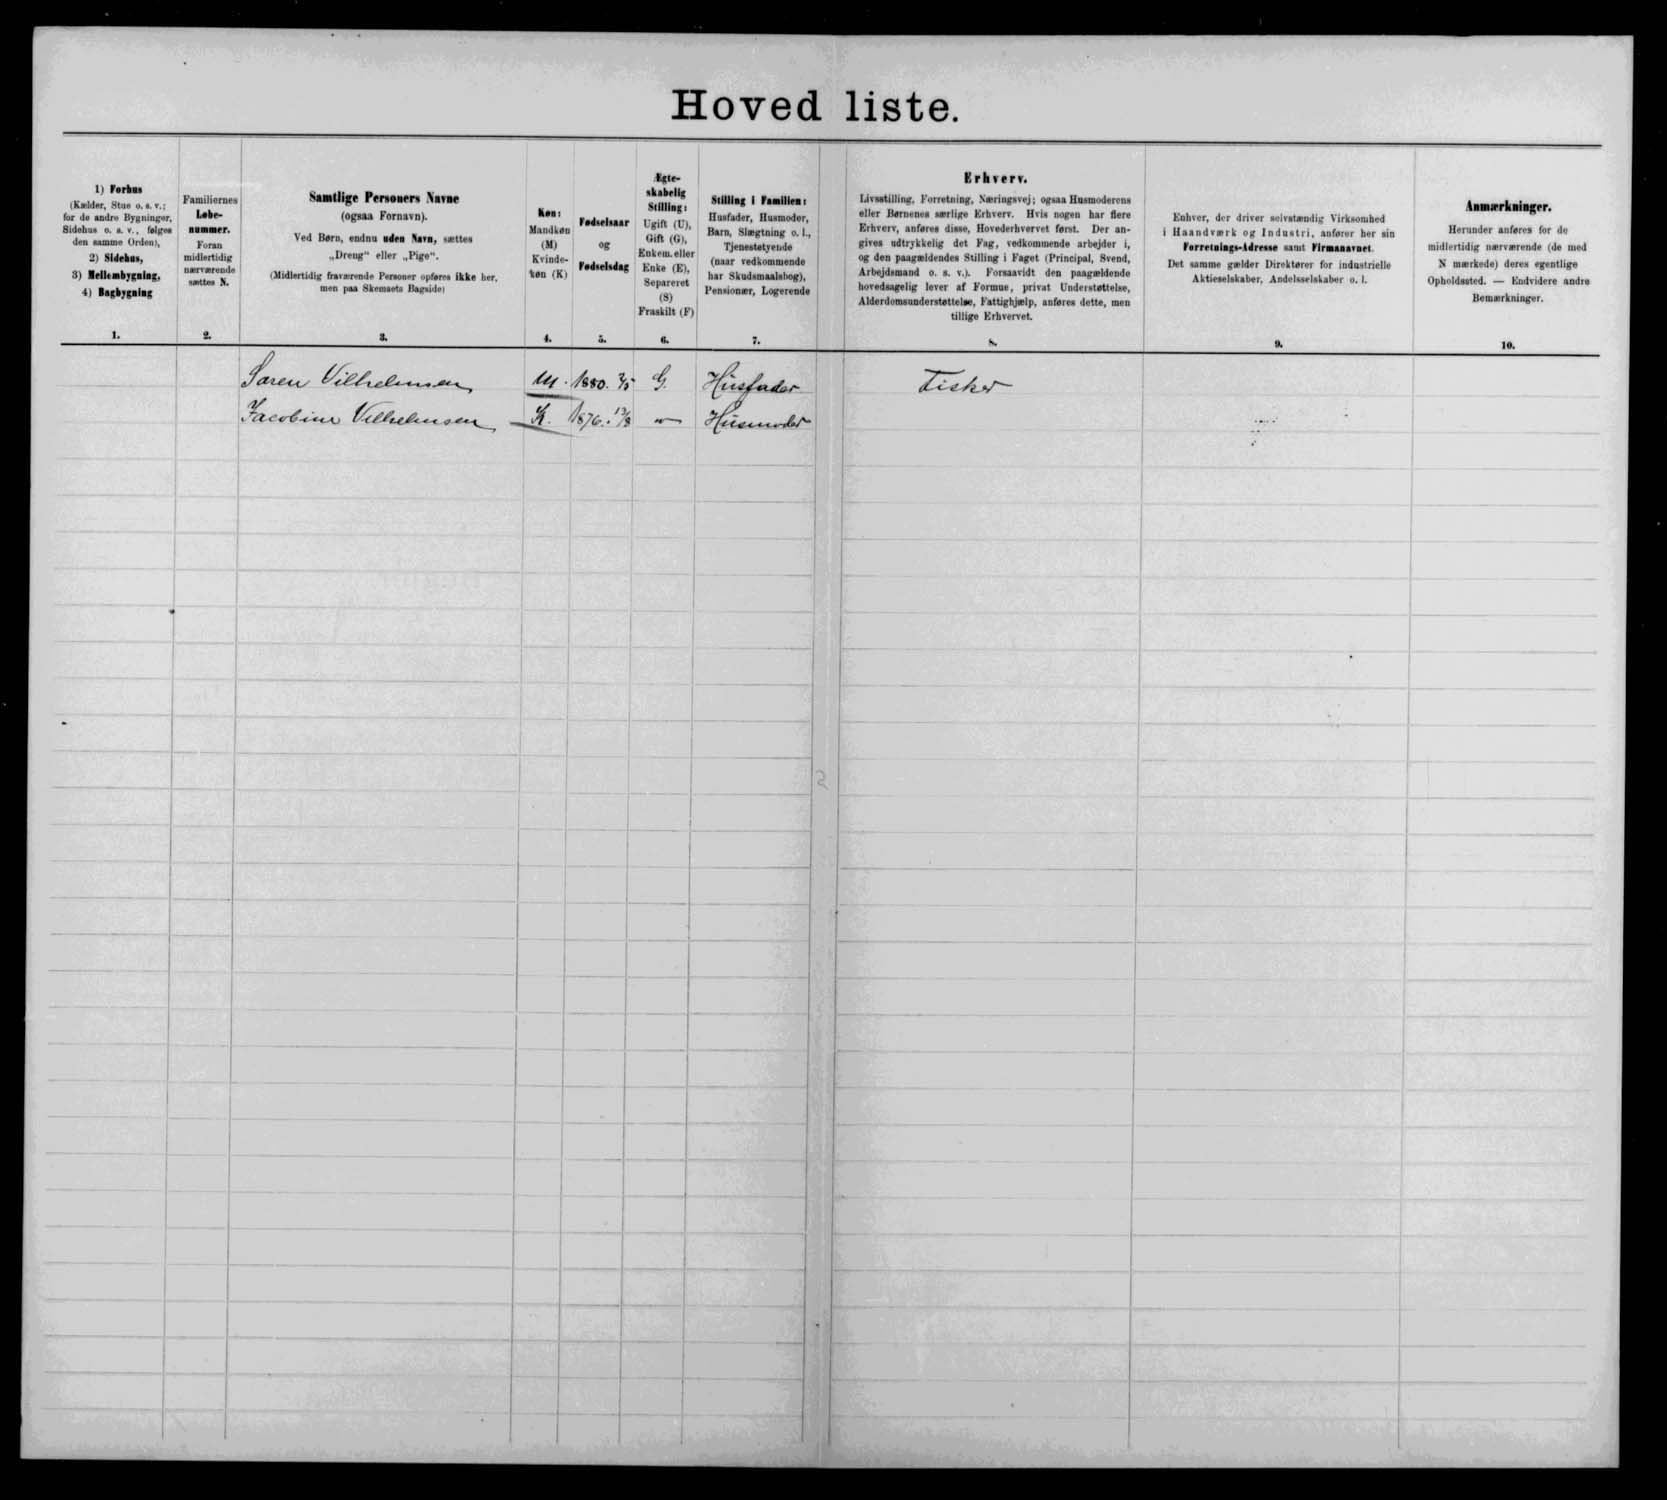 Hoved liste.
1) Forhus
(Kælder, Stue o. s. v.;
for de andre Bygninger,
Sidehus o. s. v., følges
den samme Orden),
2) Sidehus,
3) Mellembygning,
4) Bagbygning
1.
Familiernes
Løbe-
nummer.
Foran
midlertidig
nærværende
sættes N.
2.
Samtlige Personers Navne
(ogsaa Fornavn).
Ved Børn, endnu uden Navn, sættes
„Dreng“ eller „Pige“.
(Midlertidig fraværende Personer opføres ikke her,
men paa Skemaets Bagside)
3.
Køn:
Mandkøn
(M)
Kvinde-
køn (K)
4.
Fødselsaar
og
Fødselsdag
5.
Ægte-
skabelig
Stilling:
Ugift (U),
Gift (G),
Enkem. eller
Enke (E),
Separeret
(S)
Fraskilt (F)
6.
Stilling i Familien:
Husfader, Husmoder,
Barn, Slægtning o. l.,
Tjenestetyende
(naar vedkommende
har Skudsmaalsbog),
Pensionær, Logerende
7.
Erhverv.
Livsstilling, Forretning, Næringsvej; ogsaa Husmoderens
eller Børnenes særlige Erhverv. Hvis nogen har flere
Erhverv, anføres disse, Hovederhvervet først. Der an-
gives udtrykkelig det Fag, vedkommende arbejder i,
og den paagældendes Stilling i Faget (Principal, Svend,
Arbejdsmand o. s. v.). Forsaavidt den paagældende
hovedsagelig lever af Formue, privat Understøttelse,
Alderdomsunderstøttelse, Fattighjælp, anføres dette, men
tillige Erhvervet.
8.
Enhver, der driver selvstændig Virksomhed
i Haandværk og Industri, anfører her sin
Forretnings-Adresse samt Firmanavnet.
Det samme gælder Direktører for industrielle
Aktieselskaber, Andelsselskaber o. l.
9.
Anmærkninger.
Herunder anføres for de
midlertidig nærværende (de med
N mærkede) deres egentlige
Opholdssted. — Endvidere andre
Bemærkninger.
10.
Søren Vilhelmsen M. 1880. 2/5 G. Husfader Fisker
Jacobine Vilhelmsen K. 1876. 13/8 " Husmoder